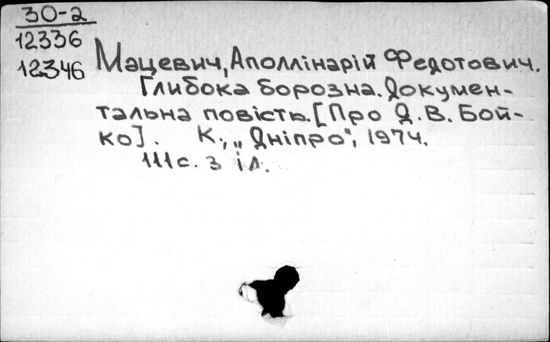 30-2
12336
12346
Мацевич, Аполлінарій Федотович.
Глибока борозна. Докумен-
тальна повість. [Про Д. В. Бой-
ко]. К., „Дніпро", 1974.
111 с. з іл.